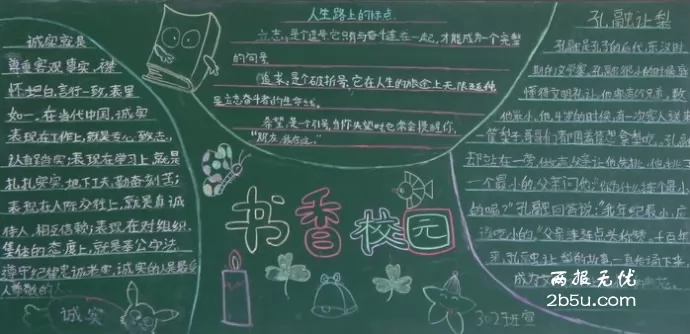 诚实就是
尊重客观事实,襟
怀坦白,言行一致,表里
如一。在当代中国,诚实
表现在工作上,就是专心致志,
认真踏实;表现在学习上,就是
扎扎实实,地下工夫,勤奋刻苦;
表现在人际交往上,就是真诚
待人,相互信赖;表现在对组织、
集体的态度上,就是奉公守法,
遵守纪律,忠诚老实,诚实的人是最
人尊敬的人。
诚实
人生路上的标点
立志,是个逗号,它只有与奋斗连在一起,才能成为一个完整
的句号
追求,是个破折号,它在人生的旅途上无限延伸
是立志奋斗者的生命线
希望,是个引号,当你失望时也常会提醒你,
“朋友,
书香校园
302班宣
孔融让梨
孔融是孔子的后代,东汉时
期的文学家,孔融很小的时候就
懂得文明礼让,他
他最小,他4岁的时候,有一次家人
梨,哥哥们都
却站在一旁,
一个最小的,父亲问他:“你为什么挑个最小
的呢?”孔融回答说:“我年纪最小,应
该吃小的。”父亲连连点头称赞,千百年
来,孔融让梨的故事一直传诵下来,
成为
两报无忧
2b5u.com